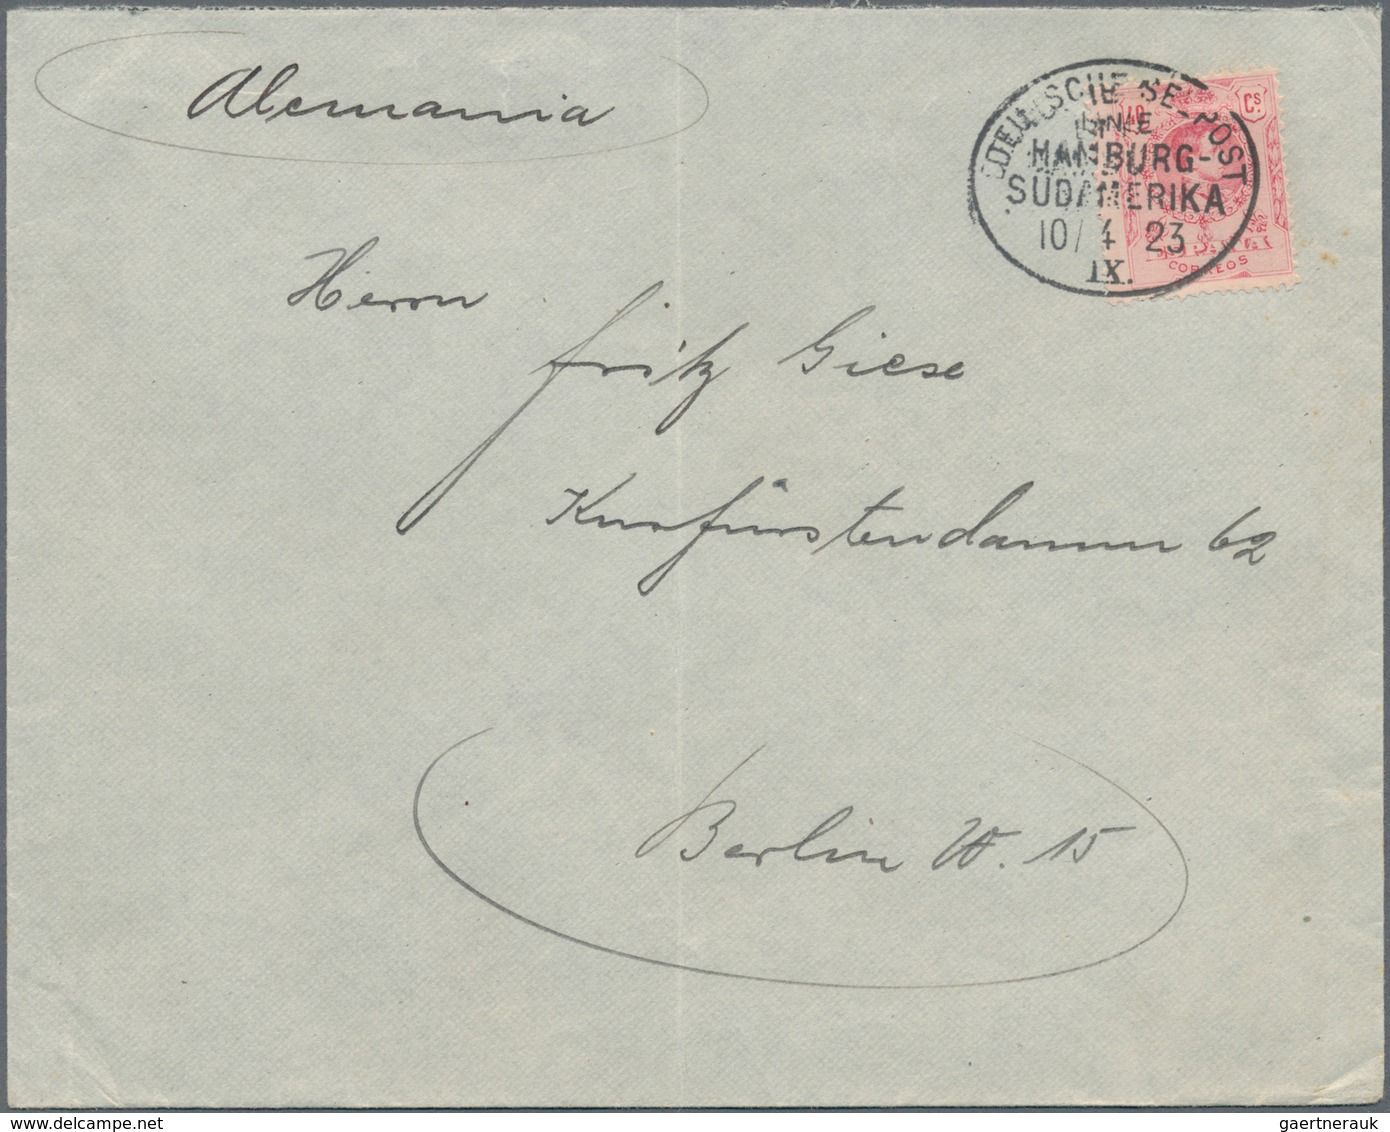 Alemania
DEUTSCHE SEEPOST
LINIE
HAMBURG-
SÜDAMERIKA
10/4 23
IX.
10 Cs
CORREOS
Herrn
Fritz Giese
Kurfürstendamm 62
Berlin W. 15
gaertnerauk